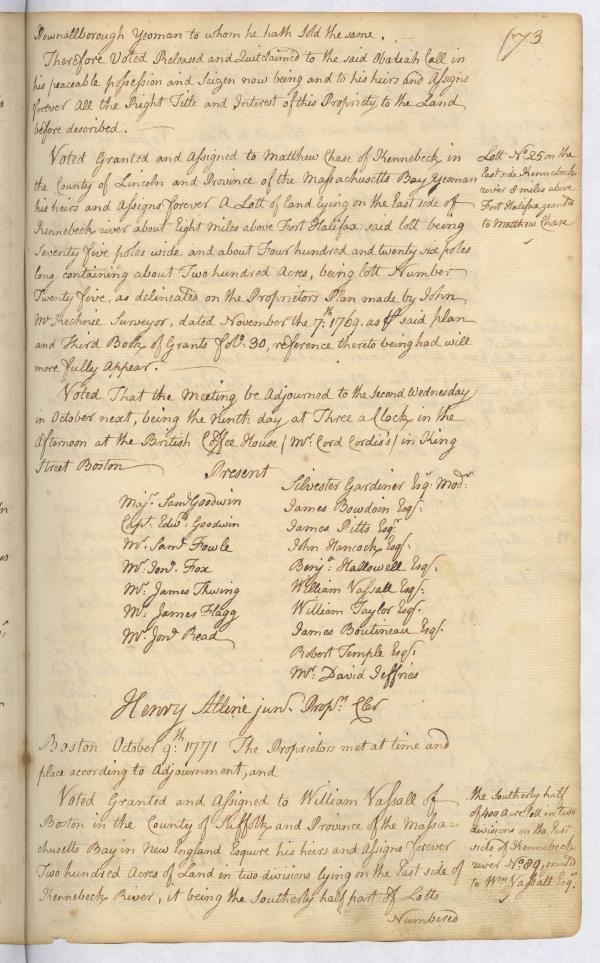 173
Pownallborough Yeoman to whom he hath Sold the same.
Therefore Voted Released and Quitclaimed to the said Obadiah Call in
his peaceable possession and Seizen now being and to his heirs and Assigns
forever All the Right Title and Interest of this Propriety to the Land
before described.
Voted Granted and Assigned to Matthew Chase of Kennebeck in
the County of Lincoln and Province of the Massachusetts Bay Yeoman
his heirs and Assigns forever A Lott of land lying on the East side of
Kennebeck river about Eight miles above Fort Halifax said lott being
Seventy five poles wide and about Four hundred and twenty six poles
long, containing about Two hundred Acres, being lott Number
Twenty five, as delineated on the Proprietors Plan made by John
McKechnie Surveyor, dated November the 7th 1769. as pr said plan
and Third Book of Grants folo: 30, reference thereto being had will
more fully Appear.
Lott No. 25 on the
East side Kennebeck
river 8 miles above
Fort Halifax granted
to Matthew Chase
Voted That the Meeting be Adjourned to the Second Wednesday
in October next, being the Ninth day at Three a Clock in the
Afternoon at the British Coffee House / Mr. Cord Cordis's / in King
Street Boston
Present
Silvester Gardiner Esqr: Modr.
Majr. Saml Goodwin
James Bowdoin Esqr:
Capt. Edwd: Goodwin
James Pitts Esqr
Mr. Saml Fowle
John Hancock Esqr:
Mr. Jonn. Fox
Benja. Hallowell Esqr.
Mr. James Thwing
William Vassall Esqr:
Mr. James Flagg
William Taylor Esqr.
Mr. Jonn Read
James Boutineau Esqr.
Robert Temple Esqr:
Mr. David Jeffries
Henry Alline junr. Propr. Cler
Boston October 9th: 1771 The Proprietors met at time and
place according to Adjournment, and
Voted Granted and Assigned to William Vassall of
Boston in the County of Suffolk and Province of the Massa=
chusetts Bay in New England Esquire his heirs and Assigns forever
Two hundred Acres of Land in two divisions lying on the East side of
Kennebeck River, it being the Southerly half part of Lotts
Numbered
the Southerly half
of 400 Acre lott in two
divisions on the East
side of Kennebeck
river No. 89, granted
to Wm Vassall Esqr.